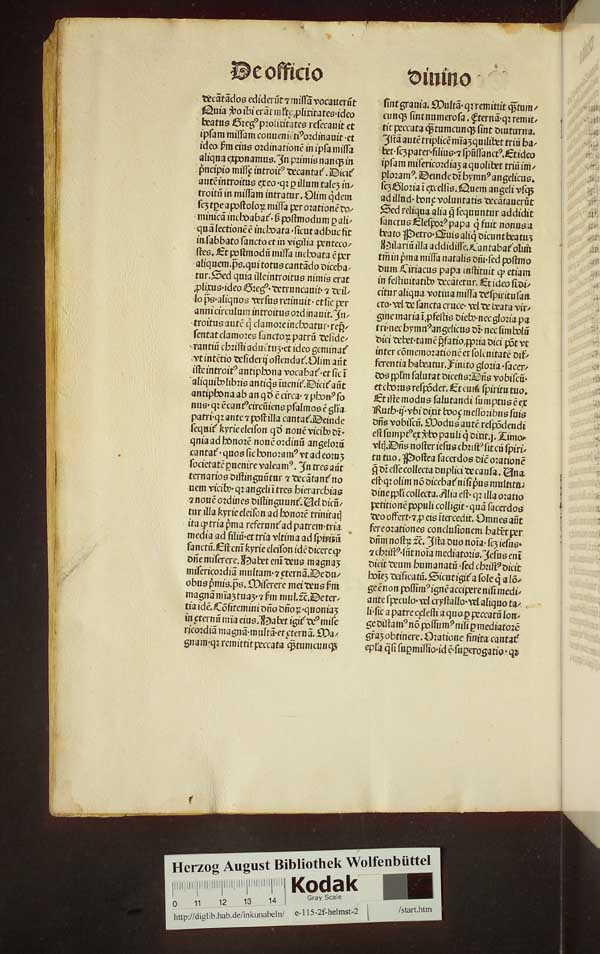 De officio diuino
decãtãdos ediderũt ⁊ missã vocauerũt
Quia ꝟo ibi erãt mlte ꝓlixitates · ideo
beatus Gregꝰ prolixitates resecauit et
ipsam missam conueniẽtiꝰ ordinauit · et
ideo ẜm eius ordinationẽ in ipsa missa
aliqua exponamus. In primis nanqꝫ in
pͥncipio misse introitꝰ decantaꞇ̃. Diciꞇ̃
autẽ introitus ex eo · qꝛ ꝑ illum talẽ in-
troitũ in missam intratur. Olim qͥdem
scꝫ tꝑe apostoloꝝ missa per orationẽ do-
minicã inchoabaꞇ̃ · ẜꝫ postmodum ꝑ ali-
quã lectionẽ ẽ inchoata · sicut adhuc fit
in sabbato sancto et in vigilia penteco-
stes. Et postmodũ missa inchoata ẽ per
aliquem.ps̃.qui totus cantãdo diceba-
tur. Sed quia ille introitus nimis erat
ꝓlixus · ideo Gregꝰ · detruncauit · ⁊ de il-
lo ps̃ · aliquos versus retinuit · et sic per
anni circulum introitus ordinauit. In-
troitus autẽ qͥ clamore inchoatur · repͥ-
sentat clamores sanctoꝝ patrũ deside-
rantiũ christi aduẽtuꝫ · et ideo geminaꞇ̃
vt intẽtio desiderij ostendaꞇ̃. Olim aũt
iste introitꝰ antiphona vocabaꞇ̃ · et sic ĩ
aliquibꝰ libris antiqͥs inueniꞇ̃. Diciꞇ̃ aũt
antiphona ab an qd̃ ẽ circa · ⁊ phonꝰ so-
nus · qꝛ ẽ cantꝰ circũiens psalmos ẽ gl̃ia
patri · qꝛ ante ⁊ post illa cantaꞇ̃. Deinde
sequiꞇ̃ kyrie eleison qd̃ nouẽ vicibꝰ dꝛ̃ ·
quia ad honorẽ nonẽ ordinũ angeloꝝ
cantaꞇ̃ · quos sic honoramꝰ vt ad eoruꝫ
societatẽ ꝑuenire valeamꝰ. In tres aũt
ternarios distinguũtur ⁊ decãtanꞇ̃ no
uem vicibꝰ · qꝛ angeli ĩ tres hierarchias
⁊ nouẽ ordines distinguunꞇ̃. Uel dicũ-
tur illa kyrie eleison ad honorẽ trinitatꝭ
ita ꝙ tria pͥma referunꞇ̃ ad patrem · tria
media ad filiũ · et tria vltima ad spiritũ
sanctũ. Est enĩ kyrie eleison idẽ dicere ꝙ
dñe miserere. Habet enĩ deus magnaꝫ
misericordiã multam · ⁊ eternã. De du-
obus pͥmis.ps̃. Miserere mei deus ẜm
magnã mĩaꝫ tuaꝫ · ⁊ ẜm mul.⁊c̃. De ter-
tia idẽ. Cõfitemini dño qm̃ bonꝰ · quoniaꝫ
in eternũ mĩa eius. Habet igiꞇ̃ deꝰ mise
ricordiã magnã · multã · et eternã. Ma-
gnam · qꝛ remittit peccata qͣ̃tumcunqꝫ
sint grauia. Multã · qꝛ remittit qͣ̃tum-
cunqꝫ sint numerosa. Eternã · qꝛ remit-
tit peccata qͣ̃tumcunqꝫ sint diuturna.
Istã autẽ triplicẽ mĩaꝫ quilibet triũ ha-
bet · scꝫ pater · filius · ⁊ spũssanctꝰ. Et ideo
ipsam misericordiaꝫ a quolibet triũ im-
ploramꝰ. Deinde dꝛ̃ hymnꝰ angelicus.
scꝫ Gloria ĩ excelsis. Quem angeli vsqꝫ
ad illud · bonę voluntatis decãtauerũt
Sed reliqua alia qͣ̃ sequuntur addidit
sanctus Elesforꝰ papa qͥ fuit nonus a
beato Petro. Quis aliqͥ dicunt beatuꝫ
Hilariũ illa addidisse. Cantabaꞇ̃ olim
tm̃ in pͥma missa natalis dñi · sed postmo
dum Ciriacus papa instituit ꝙ etiam
in festiuitatibꝰ decãtetur. Et ideo si di-
citur aliqua votiua missa de spiritu san
cto · vel de sancta cruce · vel de beata vir-
gine maria ĩ ꝓfestis diebꝰ · nec gloria pa
tri · nec hymnꝰ angelicus dꝛ̃ · nec simbolũ
dici debet · tamẽ pͥfatio ꝓpria dici põt vt
inter cõmemorationẽ et solẽnitatẽ dif-
ferentia habeatur. Finito gloria · sacer-
dos ppl̃m salutat dicens: Dñs vobiscũ ·
et chorus respõder. Et cum spiritu tuo.
Et iste modus salutandi sumptus ẽ ex
Ruth · ij · vbi dixit booz messoribus suis
dñs vobiscũ. Modus autẽ respõdendi
est sumptꝰ ex ꝟbo pauli qͥ dixit.ij. Timo.
vltĩ. Dñs noster iesus christꝰ sit cũ spiri-
tu tuo. Postea sacerdos dicit orationẽ
qͣ̃ dꝛ̃ esse collecta duplici de causa. Una
est · qꝛ olim nõ dicebaꞇ̃ nisi pͥus multitu-
dine ppl̃i collecta. Alia est · qꝛ illa oratio
petitionẽ populi colligit · quã sacerdos
deo offert · ⁊ ꝓ eis ĩtercedit. Omnes aũt
fere orationes conclusionem habẽt per
dñm nostꝝ ⁊c̃. Ista duo noĩa · scꝫ iesus ·
⁊ christꝰ · sũt noĩa mediatoris. Jesus enĩ
dicit deum humanatũ · sed christꝰ dicit
hoĩeꝫ deificatũ. Sicut igiꞇ̃ a sole qͥ a lõ-
ge ẽ non possimꝰ ignẽ accipere nisi medi-
ante speculo · vel crystallo · vel aliquo ta-
li · sic a patre celesti a quo ꝑ peccatũ lon-
ge distamꝰ nõ possumꝰ nisi ꝑ mediatorẽ
gr̃aꝫ obtinere. Oratione finita cantaꞇ̃
epl̃a qͣ̃si supmissio · id ẽ · suꝑerogatio · qꝛ
Herzog August Bibliothek Wolfenbüttel
0 11 12 13 14
Kodak
Gray Scale
http://diglib.hab.de/inkunabeln/ e-115-2f-helmst-2 /start.htm